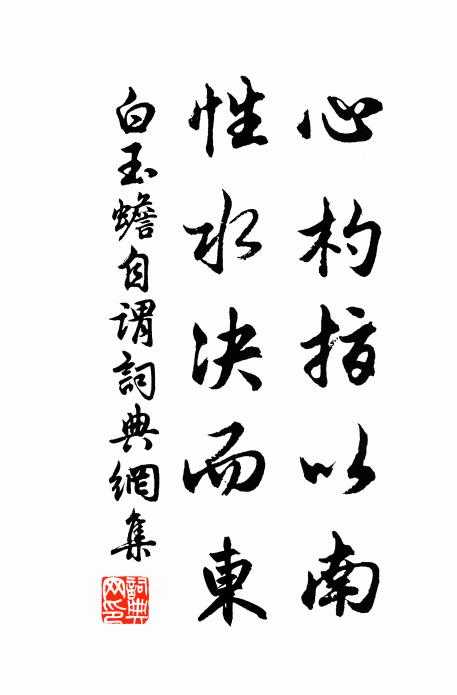 心杓指以南
性水决而東
白玉蟾自谓詞典網集
詞典网印